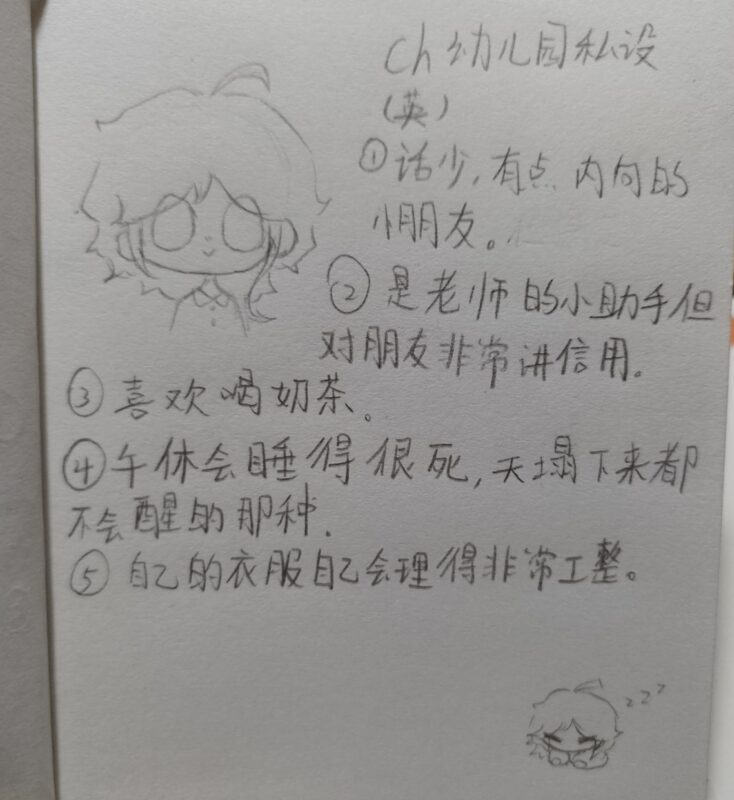 ch 幼儿园私设
(英)
①话少,有点 内向的
小朋友。
②是老师的小助手但
对朋友非常讲信用.
③喜欢喝奶茶。
④午休会睡得很死,天塌下来都
不会醒的那种.
⑤自己的衣服自己会理得非常工整。
zzz